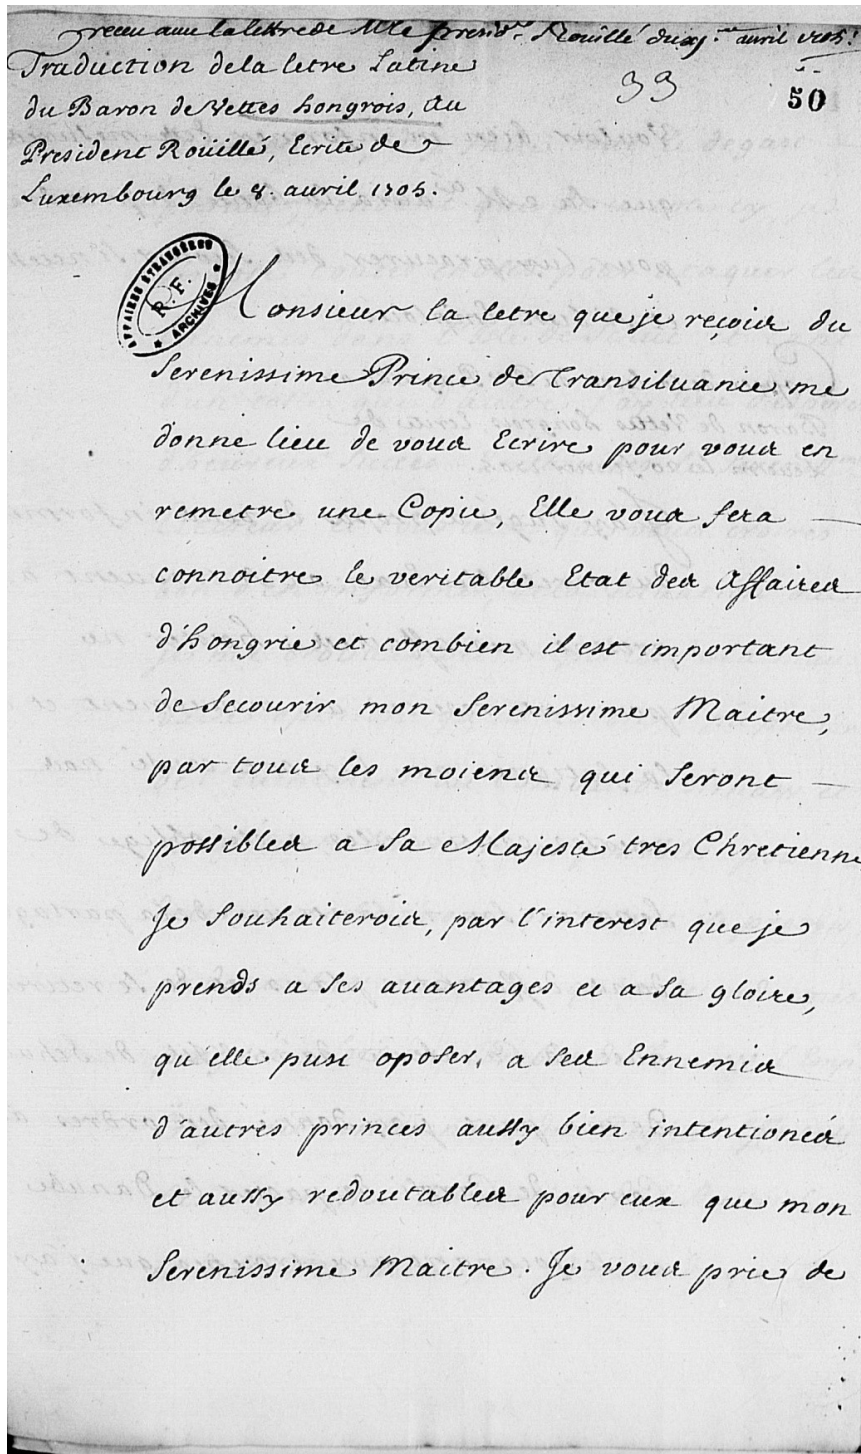 receu avec la lettre de Mr le presid.t Rouillé du xj.me avril 1705.
Traduction de la letre Latine
du Baron de Vettes hongrois, au
President Roüillé, Ecrite de
Luxembourg le 8. avril 1705.
33
50
AFFAIRES ETRANGÈRES
R.F.
ARCHIVES
Monsieur la letre que je reçois du
Serenissime Prince de Transilvanie me
donne lieu de vous Ecrire pour vous en
remetre une Copie, Elle vous fera
connoitre le veritable Etat des Affaires
d'hongrie et combien il est important
de Secourir mon Serenissime Maitre,
par tous les moiens qui Seront
possibles a Sa Majesté tres Chretienne
Je Souhaiterois, par l'interest que je
prends a Ses avantages et a Sa gloire,
qu'elle pust oposer, a Ses Ennemis
d'autres princes aussy bien intentionés
et aussy redoutables pour eux que mon
Serenissime Maitre. Je vous prie de